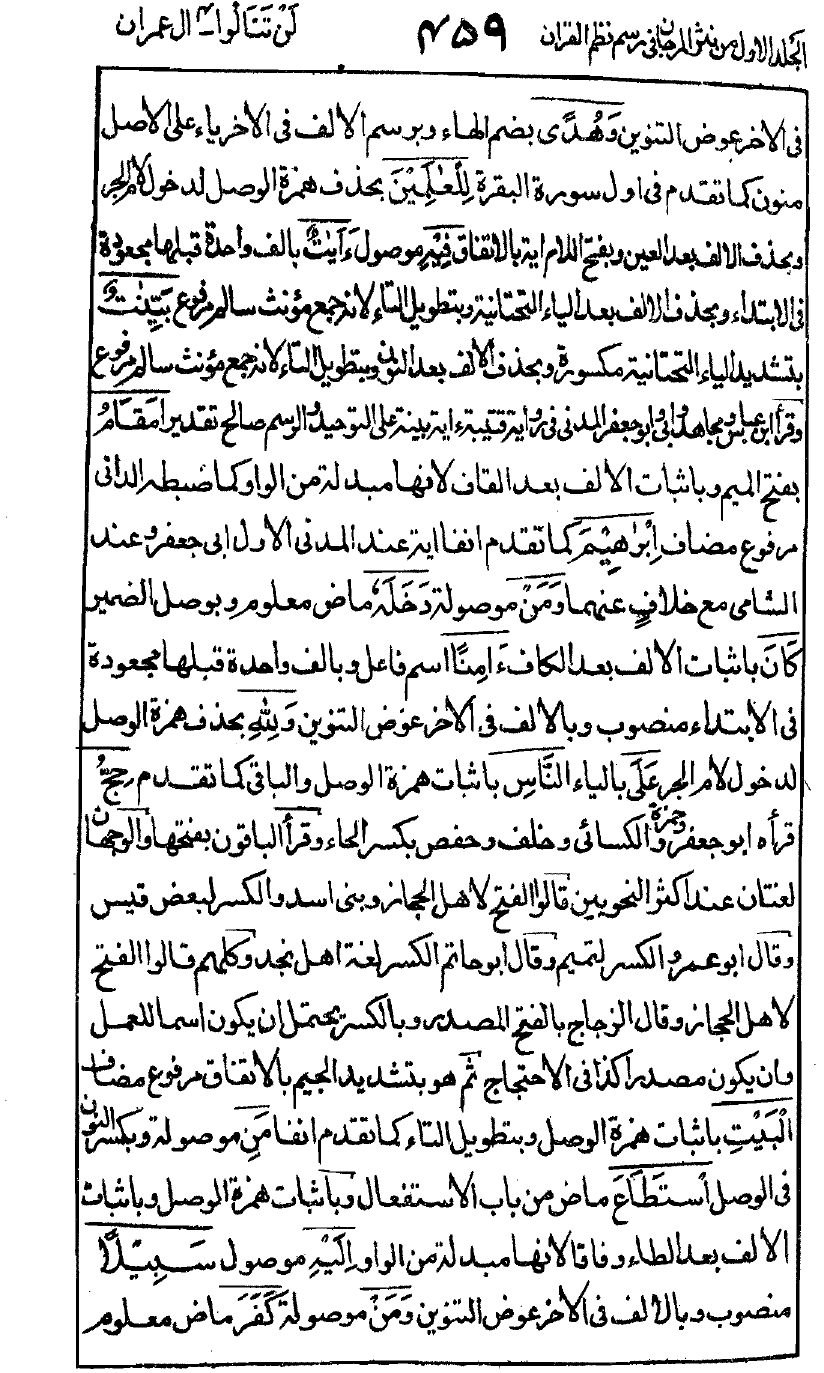 الجلد الاول من نثر المرجان فى رسم نظم القران ۴۵۹ لَنْ تَنَالُوا۔۴ ال عمران
فى الاخر عوض التنوين وَهُدًى بضم الهاء وبرسم الالف فى الاخر ياء على الاصل
منون كما تقدم فى اول سورة البقرة لِلْعٰلَمِيْنَ بحذف همزة الوصل لدخول لام الجر
وبحذف الالف بعد العين وبفتح اللام اية بالاتفاق فِيْهِ موصول ءَايٰتٌۢ بالف واحدة قبلها مجعودة
فى الابتداء وبحذف الالف بعد الياء التحتانية وبتطويل التاء لانه جمع مؤنث سالم مرفوع بَيِّنٰتٌ
بتشديد الياء التحتانية مكسورة وبحذف الالف بعد النون وبتطويل التاء لانه جمع مؤنث سالم مرفوع
وقرأ ابن عباس ومجاهد وابى وابو جعفر المدنى فى رواية قتيبة ءاية بينة على التوحيد والرسم صالح تقديرا مَقَامُ
بفتح الميم وباثبات الالف بعد القاف لانها مبدلة من الواو كما ضبطه الدانى
مرفوع مضاف اِبْرٰهِيْمَ كما تقدم انفا اية عند المدنى الاول ابى جعفر وعند
الشامى مع خلافٍ عنهما وَمَنْ موصولة دَخَلَهٗ ماض معلوم وبوصل الضمير
كَانَ باثبات الالف بعد الكاف ءَامِنًا اسم فاعل وبالف واحدة قبلها مجعودة
فى الابتداء منصوب وبالالف فى الاخر عوض التنوين وَلِلّٰهِ بحذف همزة الوصل
لدخول لام الجر عَلَى بالياء النَّاسِ باثبات همزة الوصل والباقى كما تقدم حِجُّ
قرأه ابو جعفر وحمزة والكسائى وخلف وحفص بكسر الحاء وقرأ الباقون بفتحها والوجهان
لغتان عند اكثر النحويين قالوا الفتح لاهل الحجاز وبنى اسد والكسر لبعض قيس
وقال ابو عمرو الكسر لتميم وقال ابو حاتم الكسر لغة اهل نجد وكلهم قالوا الفتح
لاهل الحجاز وقال الزجاج بالفتح المصدر وبالكسر يحتمل ان يكون اسما للعمل
وان يكون مصدرا كذا فى الاحتجاج ثم هو بتشديد الجيم بالاتفاق مرفوع مضاف
الْبَيْتِ باثبات همزة الوصل وبتطويل التاء كما تقدم انفا مَنِ موصولة وبكسر النون
فى الوصل اسْتَطَاعَ ماض من باب الاستفعال وباثبات همزة الوصل وباثبات
الالف بعد الطاء وفاقا لانها مبدلة من الواو اِلَيْهِ موصول سَبِيْلًا
منصوب وبالالف فى الاخر عوض التنوين وَمَنْ موصولة كَفَرَ ماض معلوم